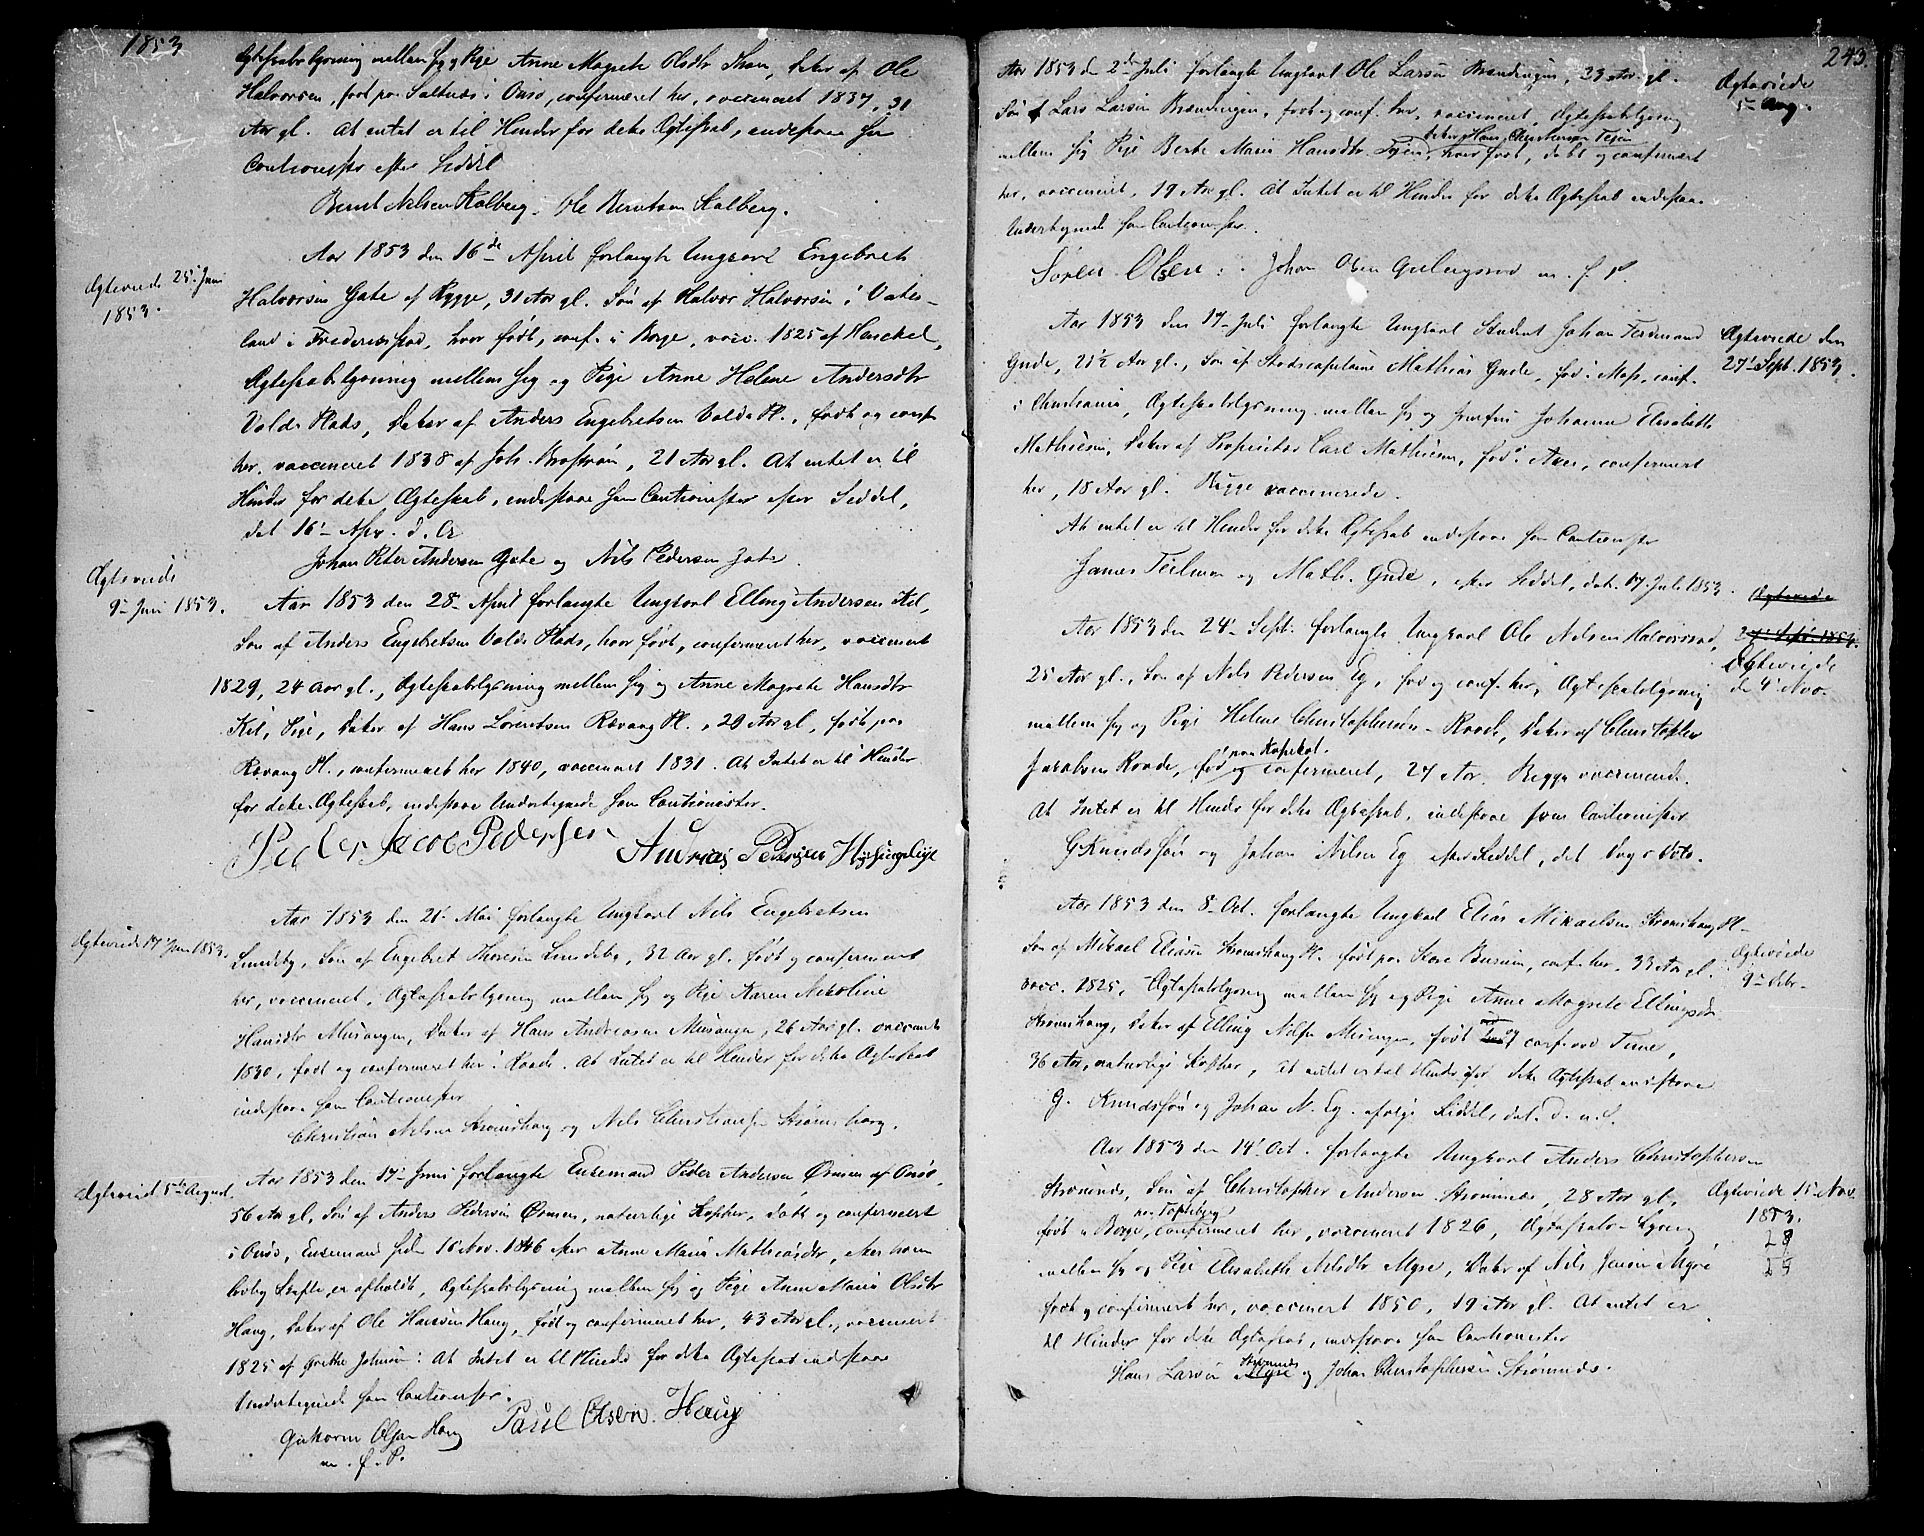 1853
Ægteskabslysning mellem sig og Pige Anne Magrete Olsdtr Skaar, Datter af Ole
Halvorsen, født paa Saltnæs i Onsø, confirmeret her, vaccineret 1837, 31
Aar gl. At intet er til Hinder for dette Ægteskab, indestaae som
Cautionister efter Seddel
Bernt Nilsen Kalberg. Ole Berntsen Kalberg.
Ægteviede 25. Juni
1853.
Aar 1853 den 16de April forlangte Ungkarl Engebret
Halvorsen Gate af Rygge, 31 Aar gl. Søn af Halvor Halvorsen i Vater-
land i Frederikstad, hvor født, conf. i Borge, vacc. 1825 af Henckel,
Ægteskabslysning mellem sig og Pige Anne Helene Andersdtr
Volds Plads, Datter af Anders Engebretsen Volds Pl., født og conf.
her, vaccineret 1838 af Joh. 21 Aar gl. At intet er til
Hinder for dette Ægteskab, indestaae som Cautionister efter Seddel,
dat 16. Apr. d. A.
Johan Peter Andersen Gate og Nils Pedersen Gate.
Ægteviede
9. Juni 1853.
Aar 1853 den 28. April forlangte Ungkarl Elling Andersen Kil,
Søn af Anders Engebretsen Volds Plads, hvor født, confirmeret her, vaccineret
1829, 24 Aar gl., Ægteskabslysning mellem sig og Anne Magrete Hansdtr
Kil, Pige, Datter af Hans Lorentsen Rævaug Pl., 29 Aar gl, født paa
Rævaug Pl., confirmeret her 1840, vaccineret 1831. At Intet er til Hinder
for dette Ægteskab, indestaae Undertegnede som Cautionister.
Peder Jacob Pedersen Andreas Pedersen
Ægteviede 17 Juni 1853.
Aar 1853 den 21. Mai forlangte Ungkarl Nils Engebretsen
Lundeby, Søn af Engebret Thoresen Lundeby, 32 Aar gl. født og confirmeret
her, vaccineret, Ægteskabslysning mellem sig og Pige Karen Nikoline
Hansdtr Musangen, Datter af Hans Andreasen Musangen, 26 Aar gl. vaccineret
1830, født og confirmeret her i Raade. At Intet er til Hinder for dette Ægteskab
indestaae som Cautionister
Christian Nilsen Kromshaug og Nils Christiansen Strømshaug.
Ægteviede 5te August.
Aar 1853 den 17. Juni forlangte Enkemand Peder Andersen Ørmen af Onsø,
56 Aar gl, Søn af Anders Pedersen Ørmen, naturlige Kopper, født og confirmeret
i Onsø, Enkemand siden 10 Nov. 1846 efter Anne Maria Mathiasdtr, efter hvem
lovlig Skifte er afholdt, Ægteskabslysning mellem sig og Pige Anne Maria Olsdtr
Haug, Datter af Ole Hansen Haug, født og confirmeret her, 43 Aar gl., vaccineret
1825 af Grethe Johnsen: At Intet er til Hinder for dette Ægteskab indestaae
Undertegnede som Cautionister.
Guttorm Olsen Haug Paul Olsen. Haug
m. f. P.
243.
Aar 1853 d 2den Juli forlangte Ungkarl Ole Larsen Brændingen, 23 Aar gl.
Søn af Lars Larsen Brændingen, født og conf. her, vaccineret, Ægteskabslysning
Datter af Hans Christensen Tejen
mellem sig Pige Berte Marie Hansdtr Tejen, hvor født, døbt og confirmeret
her, vaccineret, 19 Aar gl. At Intet er til Hinder for dette Ægteskab indestaae
Undertegnede som Cautionister.
Ægteviede
5. Aug.
Søren Olsen. Johan Olsen m. f. P.
Aar 1853 den 17. Juli forlangte Ungkarl Student Johan Ferdinand
Gude, 21½ Aar gl., Søn af Stadscapitaine Mathias Gude, fød i Moss, conf.
i Christiania, Ægteskabslysning mellem sig og Frøken Johanne Elisabeth
Mathiesen, Datter af Proprietær Carl Mathiesen, fød i Aker, confirmeret
her, 18 Aar gl. Begge vaccinerede.
At intet er til Hinder for dette Ægteskab indestaae som Cautionister
James Feilman og Math. Gude, efter Seddel, dat. 17 Juli 1853.
Ægteviede den
27. Sept. 1853.
Aar 1853 den 24. Sept. forlangte Ungkarl Ole Nilsen Halvorsrød,
25 Aar gl., Søn af Nils Pedersen Eg, fød og conf. her, Ægteskabslysning
mellem sig og Pige Helene Christophersdtr Raade, Datter af Christopher
paa Kapskot.
Jacobsen Raade, fød og confirmeret, 27 Aar. Begge vaccinerede.
At Intet er til Hinder for dette Ægteskab, indestaae som Cautionister
G Knudssøn og Johan Nilsen Eg efter Seddel, det Dags Dato.
Ægteviede
27. Sept. 1853.
Ægteviede
de 4. Nov.
Aar 1853 den 8. Oct. forlangte Ungkarl Elias Mikaelsen Kromshaug Pl.
Søn af Mikael Eliasen Kromshaug Pl. født paa Store Burum, conf. her. 33 Aar gl.
vacc. 1825, Ægteskabslysning mellem sig og Pige Anne Magrete Ellingsdtr
Kromshaug, Datter af Elling Nilsen født og conf. ved Tune,
36 Aar, naturlige Kopper, At intet er til Hinder for dette Ægteskab indestaae
G. Knudssøn og Johan N. Eg. ifølge Seddel, dat. d. u. s.
Ægteviede
9. Debr.
Aar 1853 den 14. Oct. forlangte Ungkarl Anders Christophersen
Strømnes, Søn af Christopher Andersen Strømnes, 28 Aar gl,
paa Torsberg
født i Borge, confirmeret her, vaccineret 1826, Ægteskabs-Lysning
mellem sig og Pige Elisabeth Nilsdtr Myre, Datter af Nils Jensen Myre
født og confirmeret her, vaccineret 1850, 19 Aar gl. At intet er
til Hinder for dette Ægteskab, indestaae som Cautionister
Strømnes
Hans Larsen Myre og Johan Christophersen Strømnes.
Ægteviede 11. Nov.
1853.
28
29